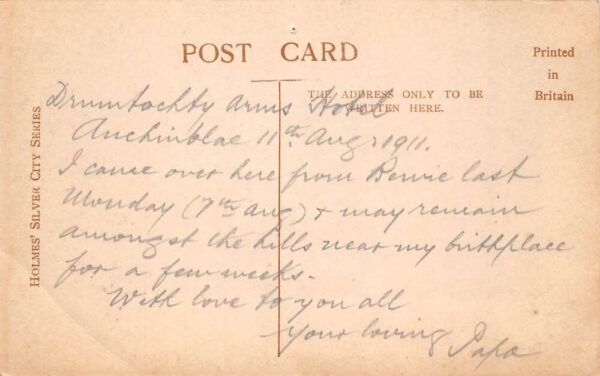 POST CARD
Printed
in
Britain
THE ADDRESS ONLY TO BE
WRITTEN HERE.
HOLMES' SILVER CITY SERIES
Drumtochty Arms Hotel
Auchinblae 11th Aug 1911.
I came over here from Bervie last
Monday (7th Aug) & may remain
amongst the hills near my birthplace
for a few weeks.
With love to you all
Your loving Papa